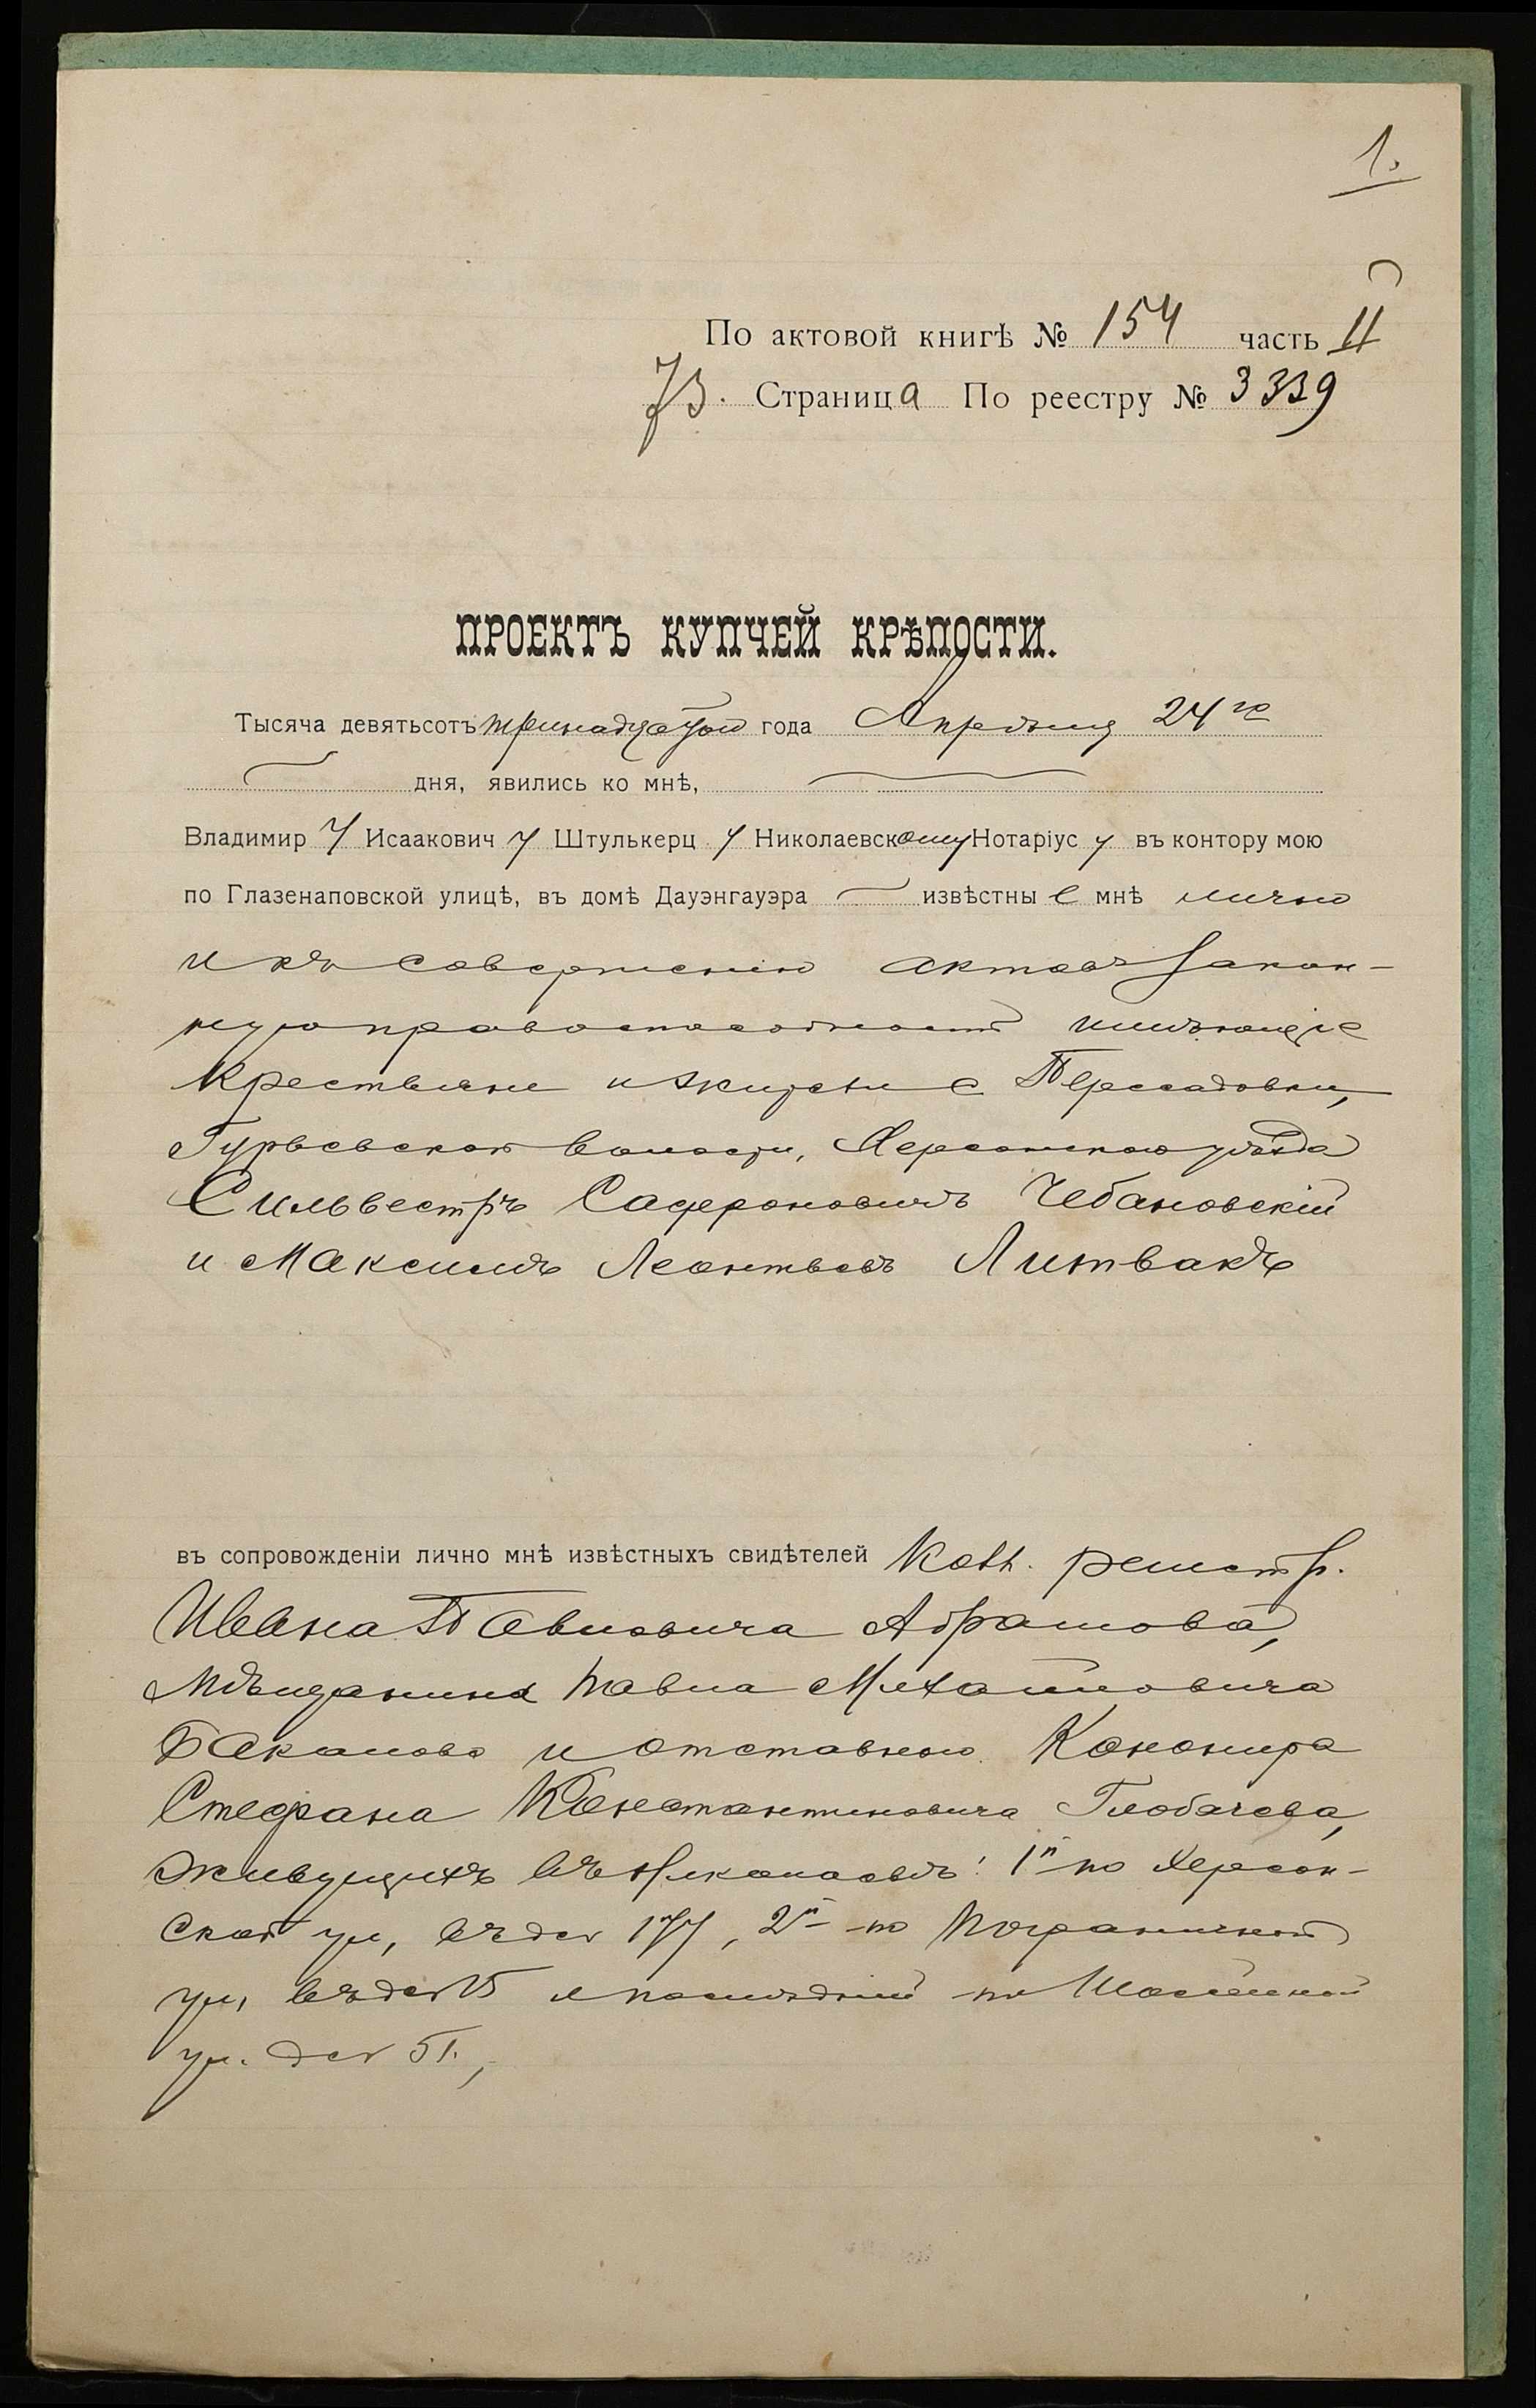 1.
По актовой книгѣ № 154 часть II
73. Страница По реестру № 3339
ПРОЕКТЪ КУПЧЕЙ КРѢПОСТИ.
Тысяча девятьсотъ тринадцатаго года Апрѣля 24го
дня, явились ко мнѣ,
Владимиру Исааковичу Штулькерцу Николаевскому Нотаріусу въ контору мою
по Глазенаповской улицѣ, въ домѣ Дауэнгауэра извѣстные мнѣ лично
и къ совершенію актовъ закон-
ную правоспособность имѣющіе
Крестьяне и жители с Пересадовки,
Гурьевской волости, Херсонскаго уѣзда
Сильвестръ Сафроновичъ Чебановскій
и Максимъ Леонтьевъ Литвакъ
въ сопровожденіи лично мнѣ извѣстныхъ свидѣтелей Колл. регистр.
Ивана Павловича Абрамова,
Мѣщанина Павла Михайловича
Бакалова и отставного Канонира
Стефана Константиновича Глобачева,
живущихъ въ Николаевѣ: 1й по Херсон-
ской ул, въ д № 177, 2й по Пограничной
ул, въ д № 15 и послѣдній по
ул. д № 51,